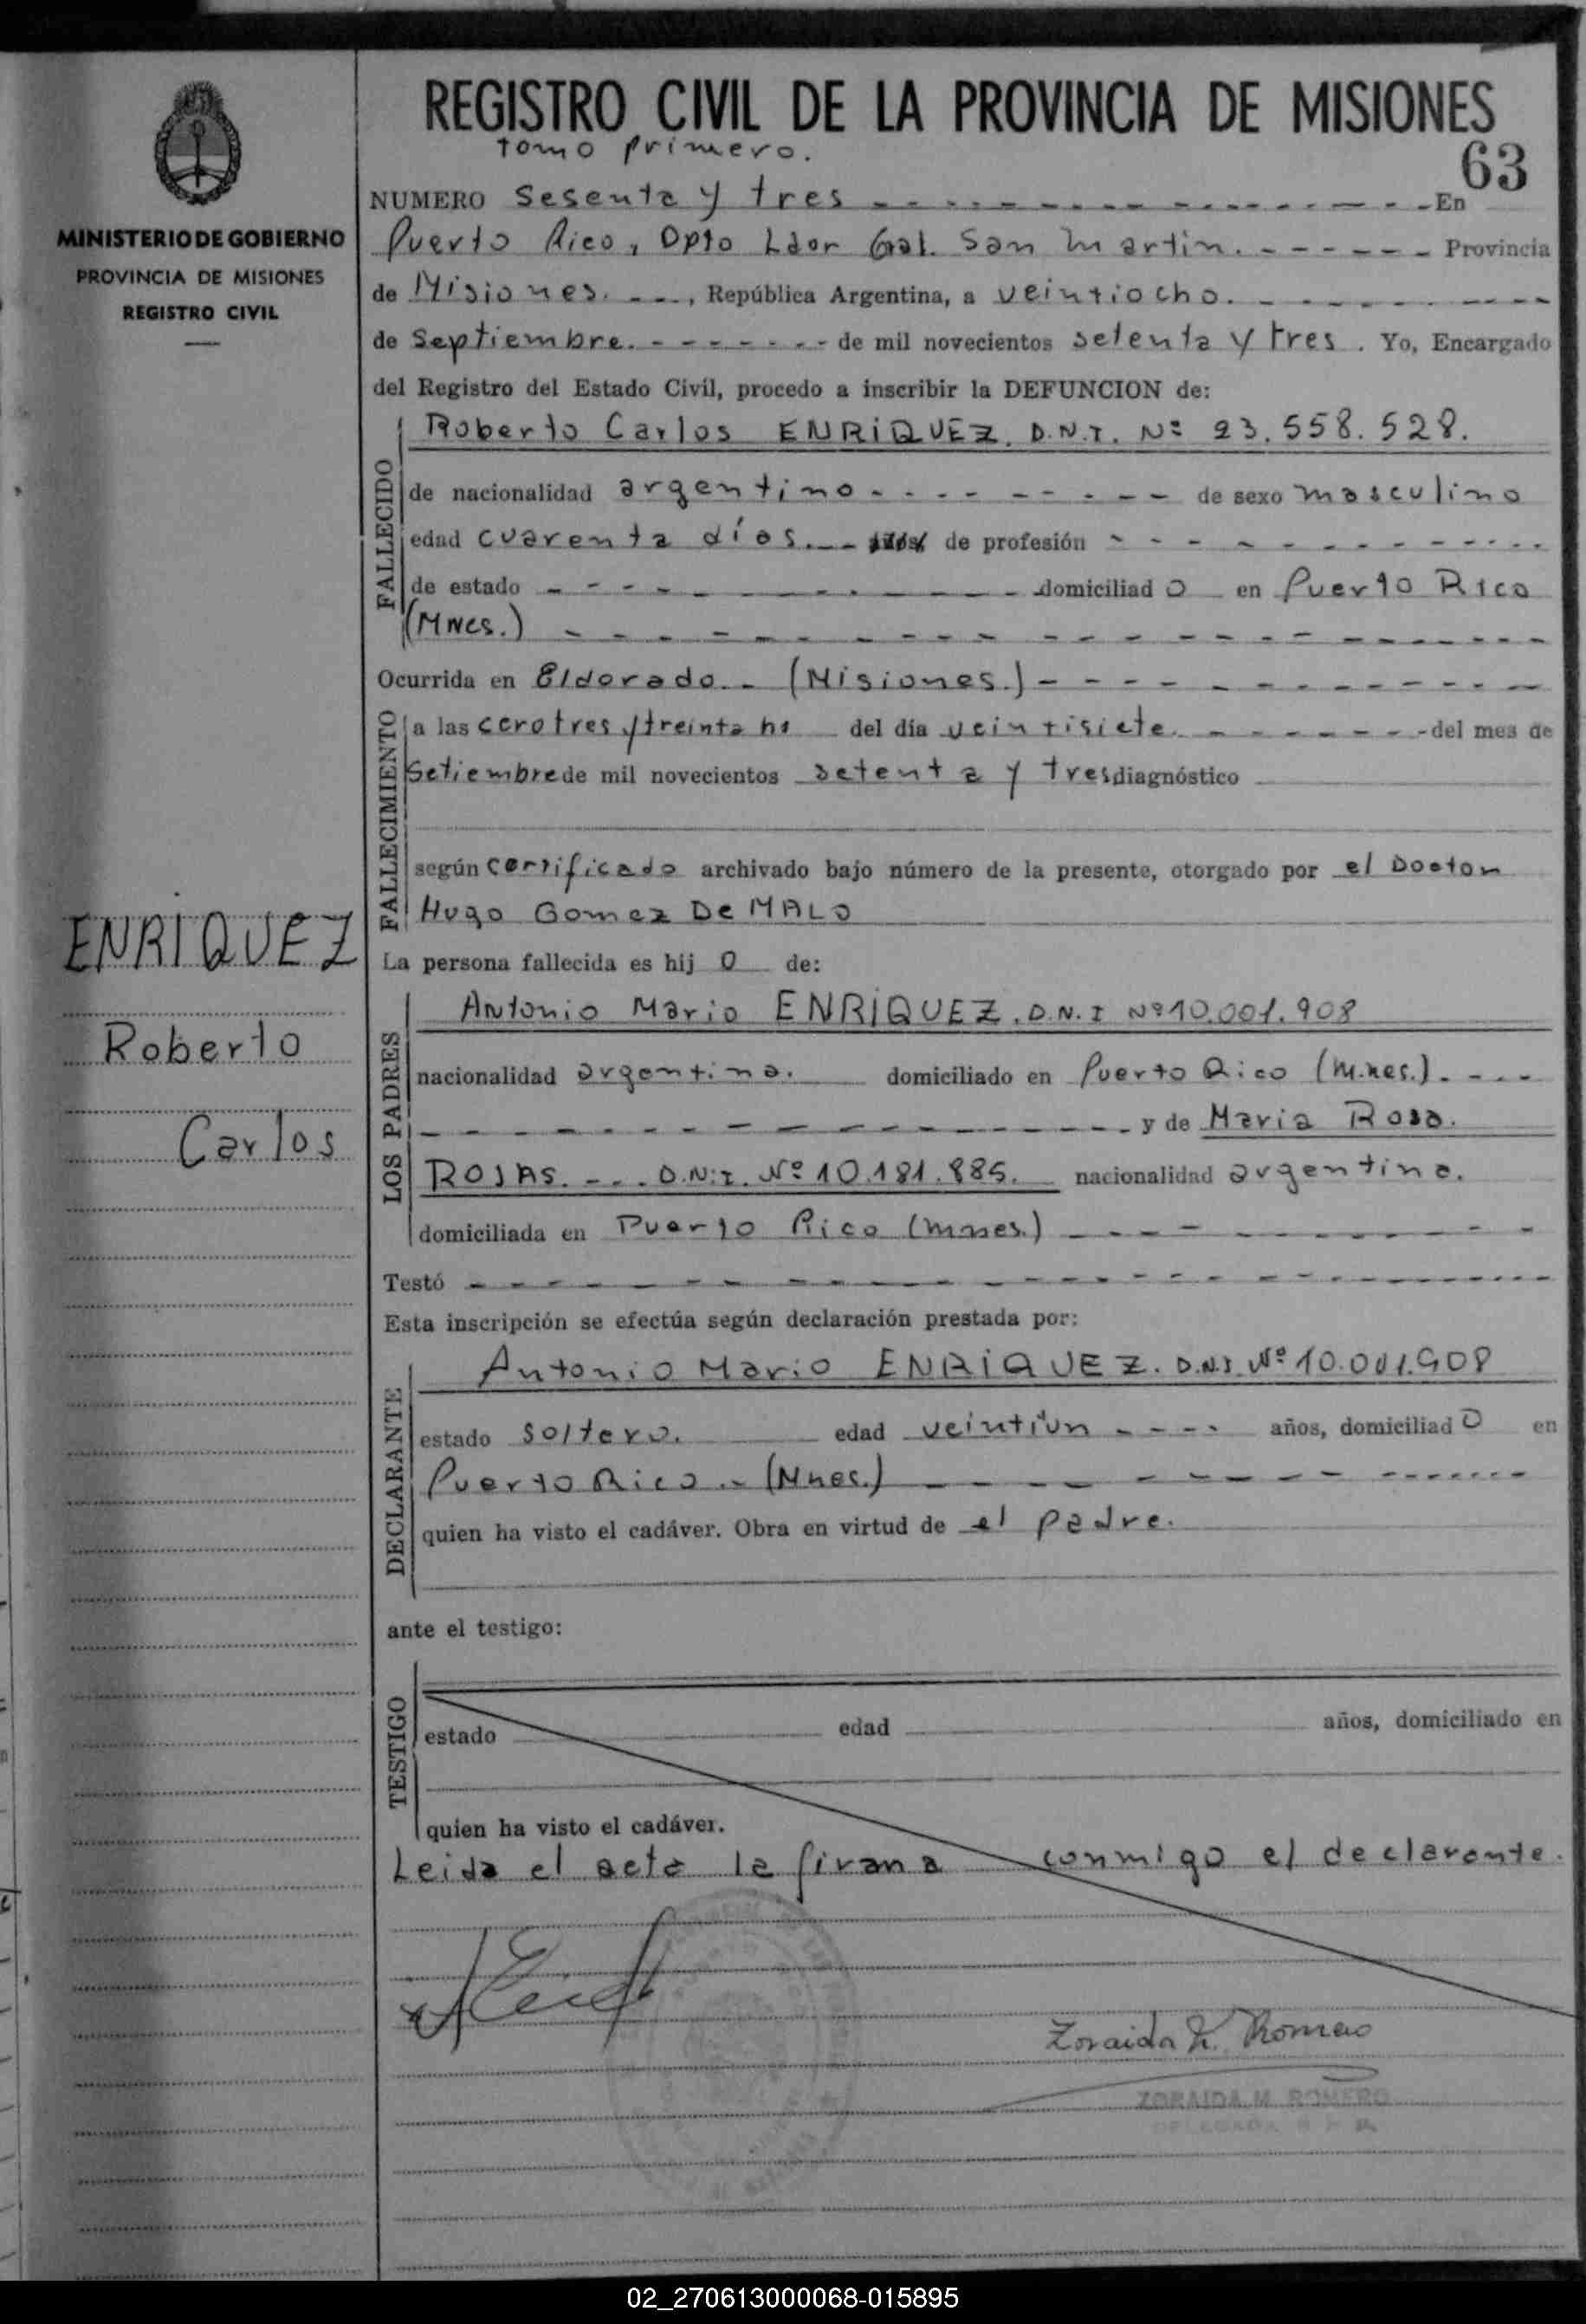 REGISTRO CIVIL DE LA PROVINCIA DE MISIONES
tomo primero.
63
MINISTERIO DE GOBIERNO
PROVINCIA DE MISIONES
REGISTRO CIVIL
NUMERO Sesenta y tres - - - En
Puerto Rico, Dpto Ldor Gral. San Martin. - - - Provincia
de Misiones. - - -, República Argentina, a veintiocho. - - -
de Septiembre. - - - de mil novecientos setenta y tres. Yo, Encargado
del Registro del Estado Civil, procedo a inscribir la DEFUNCION de:
FALLECIDO
Roberto Carlos ENRiQUEZ. D.N.I. Nº 23.558.528.
de nacionalidad argentino - - - de sexo masculino
edad cuarenta días. - - años de profesión - - -
de estado - - - domiciliad o en Puerto Rico
(Mnes.) - - -
Ocurrida en Eldorado. - (Misiones.) - - -
FALLECIMIENTO
a las cerotres y treinta hs del día veintisiete. - - - del mes de
Setiembre de mil novecientos setenta y tres diagnóstico
según certificado archivado bajo número de la presente, otorgado por el Doctor
Hugo Gomez De MALO
ENRIQUEZ
Roberto
Carlos
La persona fallecida es hij o de:
LOS PADRES
Antonio Mario ENRiQUEZ. D.N.I Nº 10.001.908
nacionalidad argentina. domiciliado en Puerto Rico (Mnes.). - - -
- - - y de Maria Rosa.
ROJAS. - - . D.N.I. Nº 10.181.885. nacionalidad argentina.
domiciliada en Puerto Rico (Mnes.) - - -
Testó - - -
Esta inscripción se efectúa según declaración prestada por:
DECLARANTE
Antonio Mario ENRiQUEZ. D.N.I. Nº 10.001.908
estado soltero. edad veintiún - - - años, domiciliad o en
Puerto Rico. - (Mnes.) - - -
quien ha visto el cadáver. Obra en virtud de el padre.
ante el testigo:
TESTIGO
estado edad años, domiciliado en
quien ha visto el cadáver.
Leida el acta la firma conmigo el declarante.
ZORAIDA M. ROMERO
02_270613000068-015895